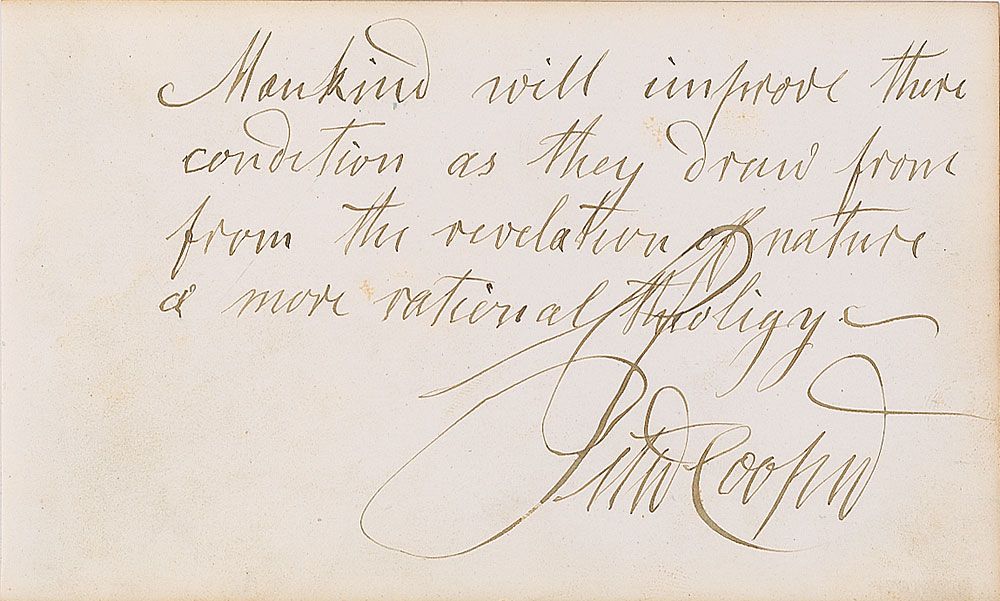 Mankind will improve there
condition as they draw from
from the revelation of nature
a more rational theoligy
Peter Cooper